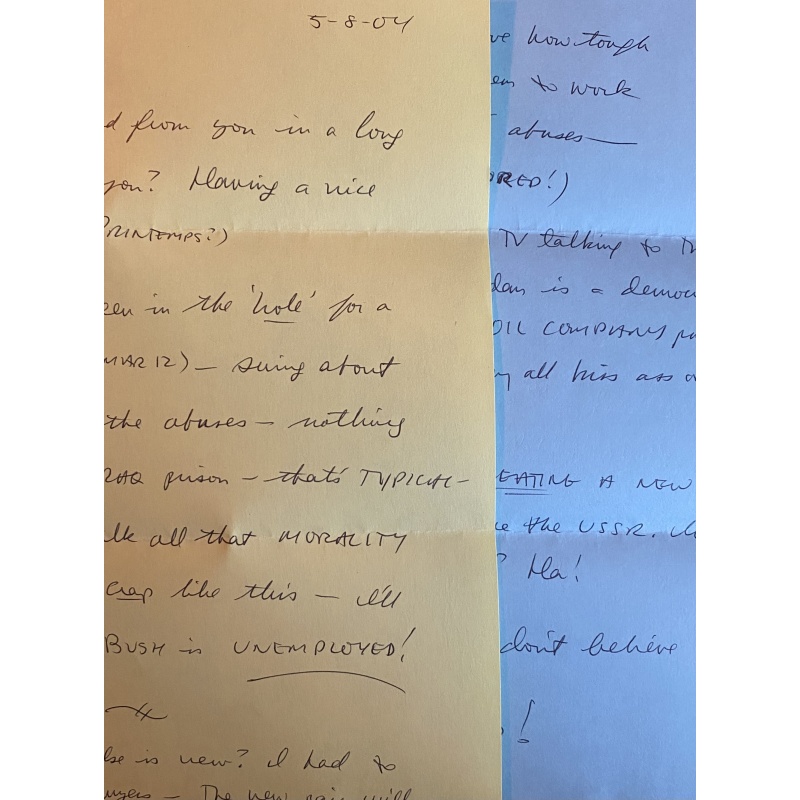 5-8-04
d from you in a long
you? Having a nice
PRINTEMPS?)
een in the 'hole' for a
MAR 12) — suing about
the abuses — nothing
RAQ prison — that's TYPICAL —
lk all that MORALITY
crap like this — I'll
BUSH is UNEMPLOYED!
lse is new? I had to
wyers — The new will
ve how tough
em to work
abuses —
RED!)
TV talking to th
dam is a democ
OIL COMPANY pu
y all kiss ass o
EATING A NEW
ke the USSR.
? Ha!
don't believe
!